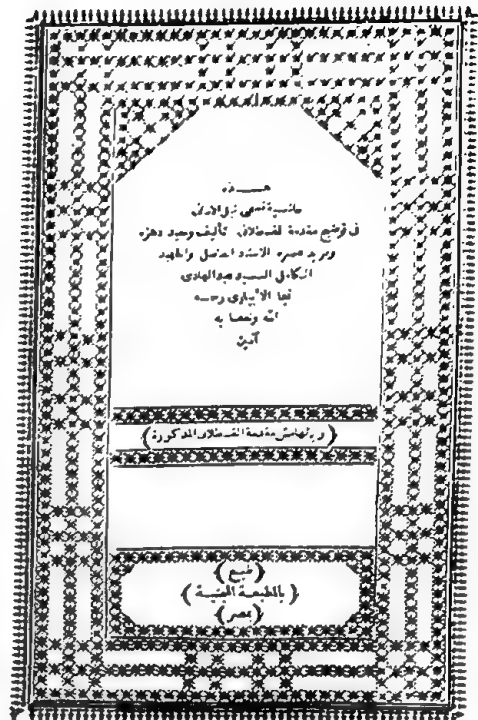 هــــذه
حاشية تسمى نيل الأماني
في توضيح مقدمة القسطلاني تأليف وحيد دهره
وفريد عصره الاستاذ الفاضل والملاذ
الكامل السيد عبدالهادي
نجا الأبياري رحمه
الله ونفعنا به
آمين
(وبالهامش مقدمة القسطلاني المذكورة)
(طبع)
(بالمطبعة الميمنية)
(بمصر)